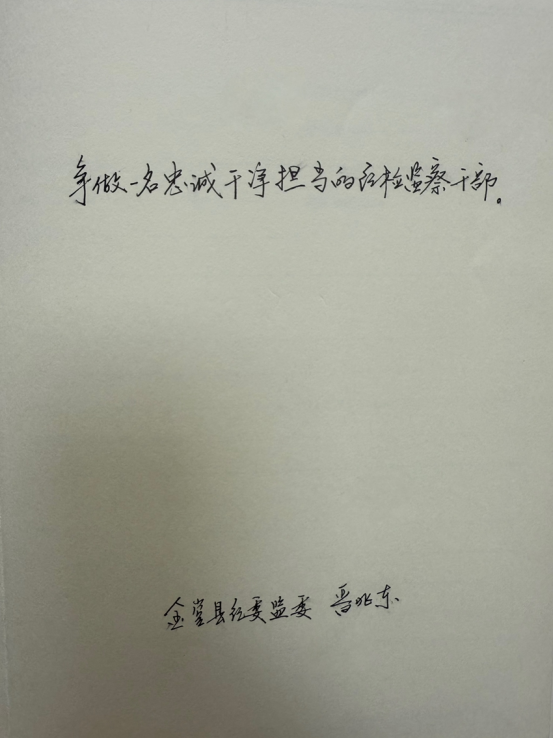 争做一名忠诚干净担当的纪检监察干部。
金堂县纪委监委 晋兆东